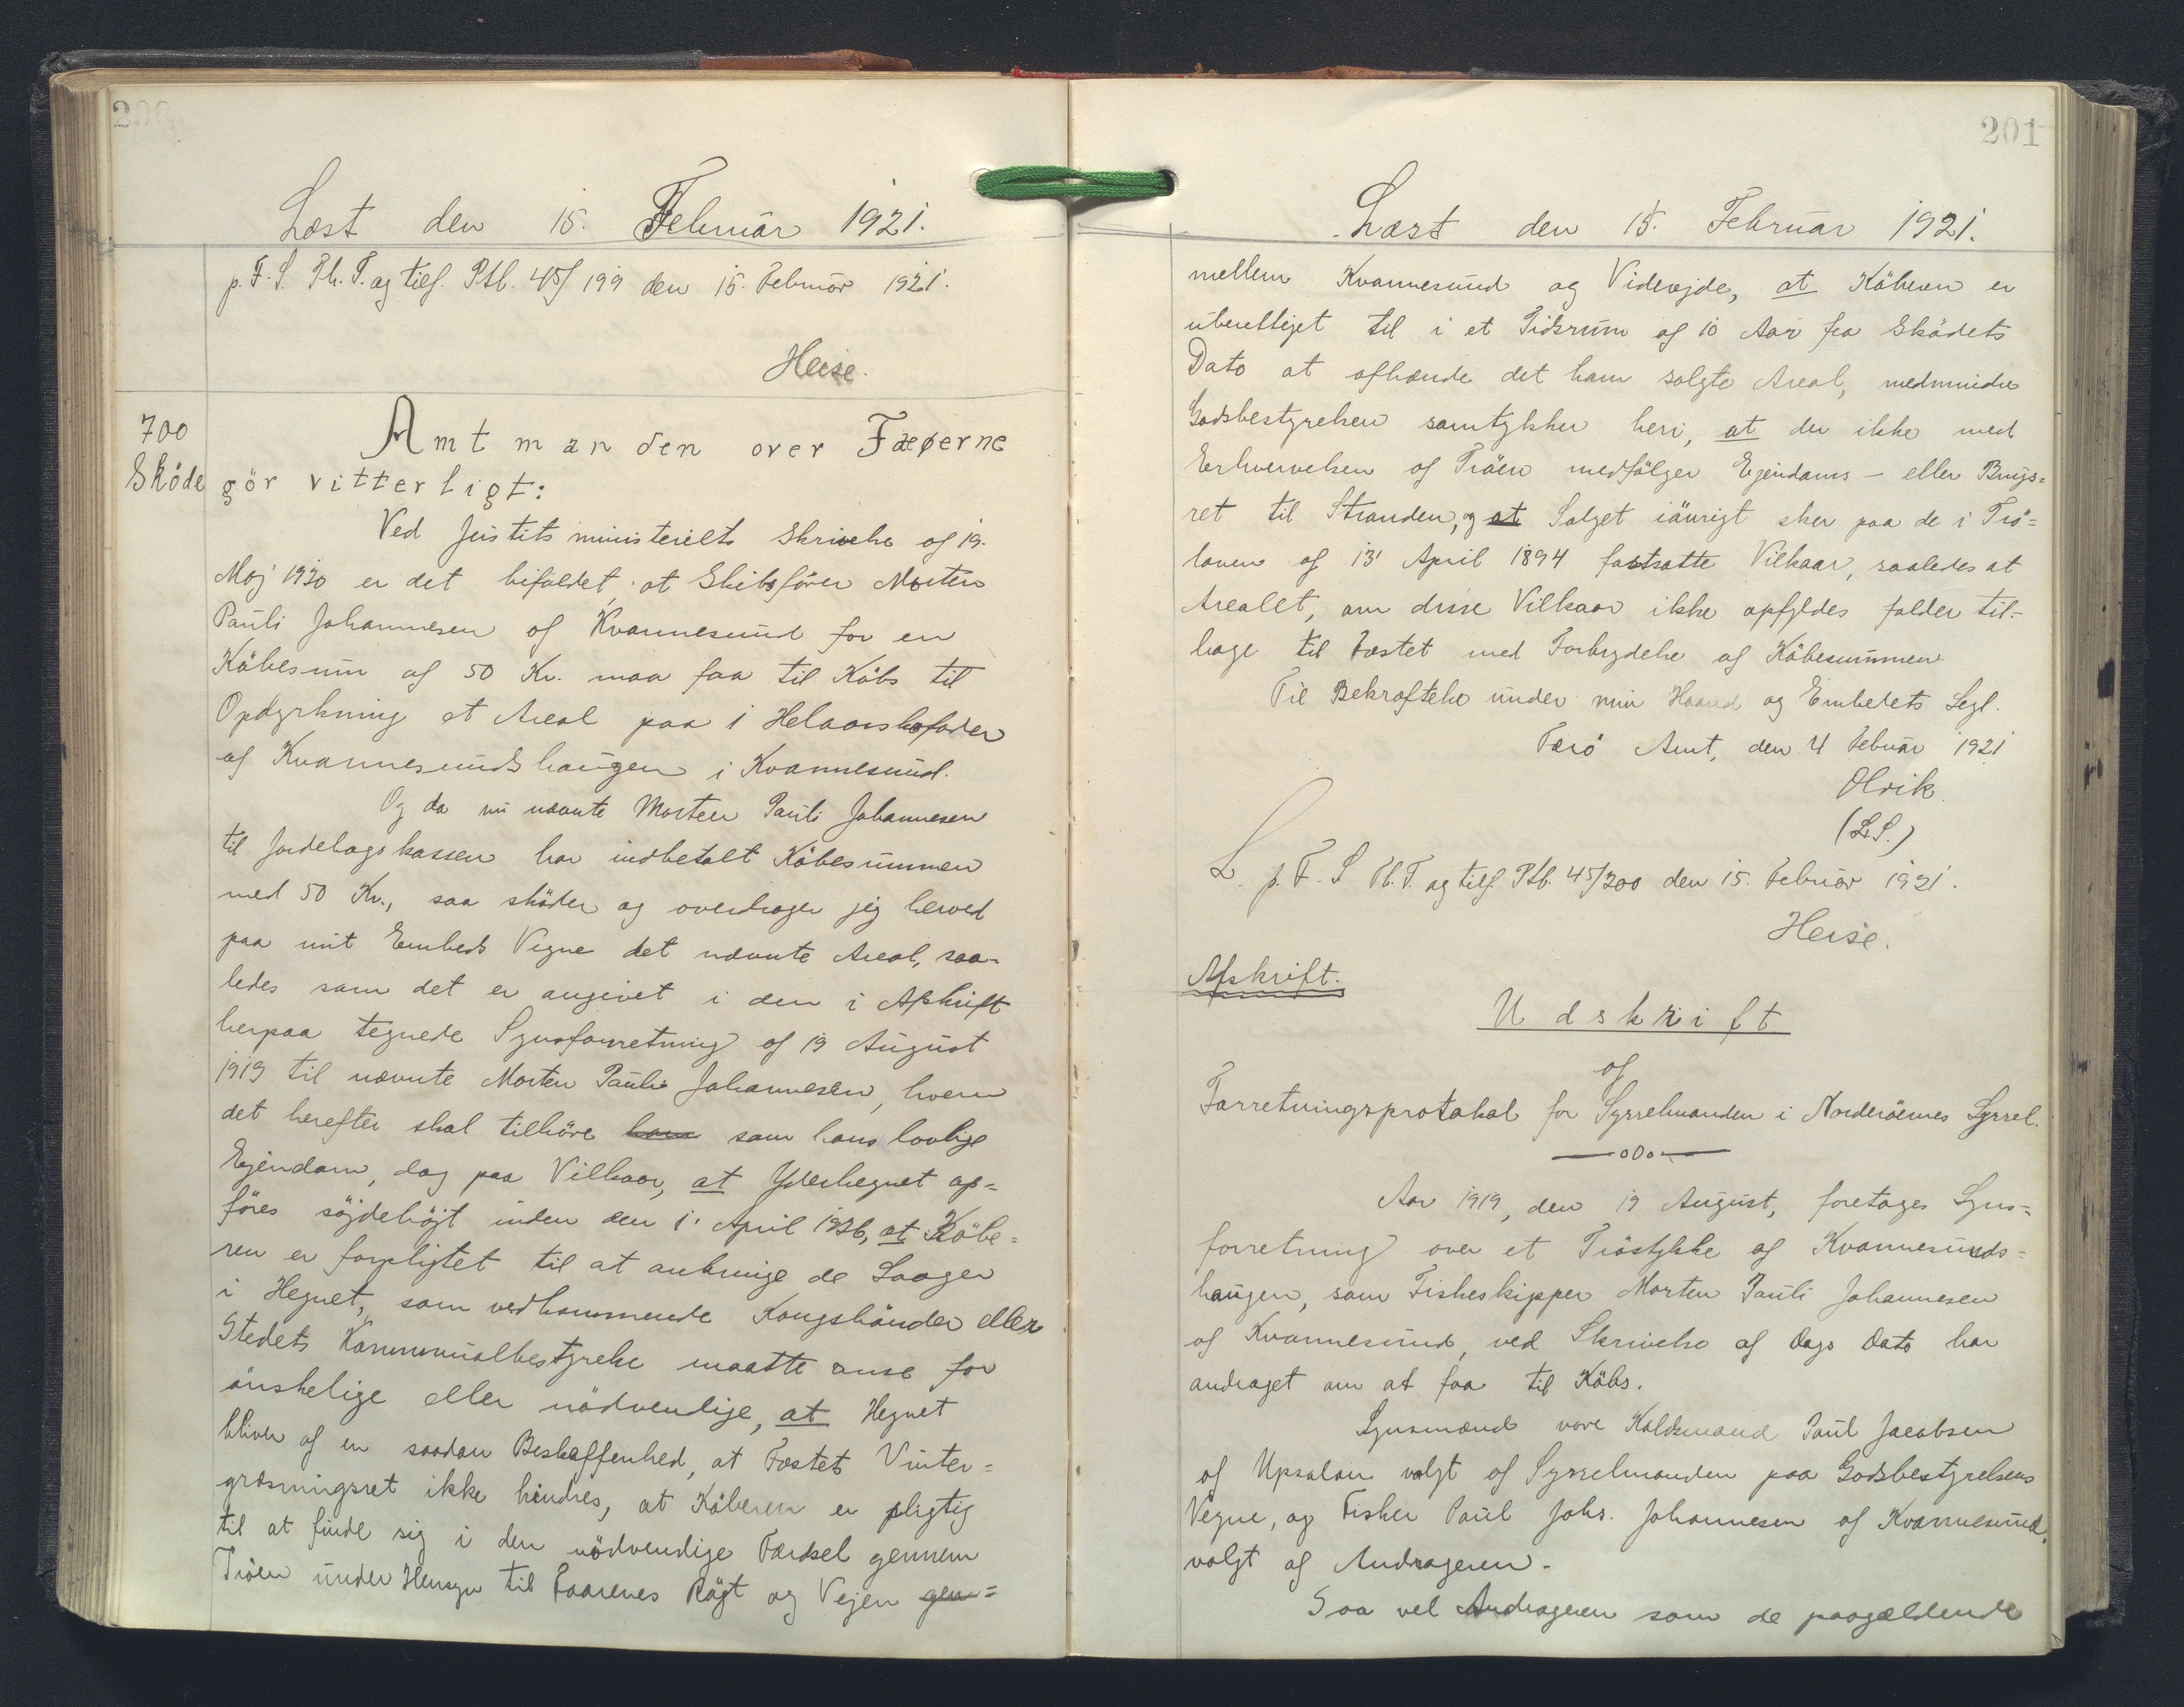 200
Læst den 15. Februar 1921.
p. F. S. Th. T. og tilf. Ptb. 45/199 den 15. Februar 1921.
Heise.
700
Sköde
Amtmanden over Færøerne
gör vitterligt:
Ved Justitsministeriets Skrivelse af 19.
Maj 1920 er det bifaldet, at Skibsförer Morten
Pauli Johannesen af Kvannesund for en
Köbesum af 50 Kr. maa faa til Köbs til
Opdyrkning et Areal paa i Helaarshofader
af Kvannesundshaugen i Kvannesund.
Og da nu nævnte Morten Pauli Johannesen
til Jordebogskassen har indbetalt Köbesummen
med 50 Kr., saa sköder og overdrager jeg herved
paa mit Embeds Vegne det nævnte Areal, saa-
ledes som det er angivet i den i Afskrift
herpaa tegnede Synsforretning af 19 August
1919 til nævnte Morten Pauli Johannesen, hvem
det herefter skal tilhöre ham som hans lovlige
Ejendom, dog paa Vilkaar, at Yderhegnet op=
föres söjdehöjt inden den 1. April 1926, at Köbe=
ren er forpligtet til at anbringe de Laager
i Hegnet, som vedkommende Kongsbönder eller
Stedets Kommunalbestyrelse maatte anse for
önskelige eller nödvendige, at Hegnet
bliver af en saadan Beskaffenhed, at Fæstets Vinter=
græsningsret ikke hindres, at Köberen er pligtig
til at finde sig i den nödvendige Færdsel gennem
Tröen under Hensyn til Faarenes Rögt og Vejen gen=
201
Læst den 15. Februar 1921.
mellem Kvannesund og Viderejde, at Köberen er
uberettiget til i et Tidsrum af 10 Aar fra Sködets
Dato at afhænde det ham solgte Areal, medmindre
Godsbestyrelsen samtykker heri, at der ikke med
Erhvervelsen af Tröen medfölger Ejendoms- eller Brugs=
ret til Stranden, og at Salget iövrigt sker paa de i Trö=
loven af 13 April 1894 fastsatte Vilkaar, saaledes at
Arealet, om disse Vilkaar ikke opfyldes falder til-
bage til Fæstet med Forbrydelse af Köbesummen
Til Bekræftelse under min Haand og Embedets Segl.
Færö Amt, den 4 Februar 1921
Olrik.
(L.S.)
L. p. F. S Th. T. og tilf Ptb. 45/200 den 15. Februar 1921.
Heise.
Afskrift.
Udskrift
af
Forretningsprotokol for Sysselmanden i Norderöernes Syssel.
—o0o—
Aar 1919, den 19 August, foretages Syns=
forretning over et Tröstykke af Kvannesunds=
haugen, som Fiskeskipper Morten Pauli Johannesen
af Kvannesund, ved Skrivelse af Dags Dato har
andraget om at faa til Köbs.
Synsmænd vare Koldsmand Paul Jacobsen
af Upsalan valgt af Sysselmanden paa Godsbestyrelsens
Vegne, og Fisker Paul Johs. Johannesen af Kvannesund,
valgt af Andrageren.
Saa vel Andrageren som de paagældende